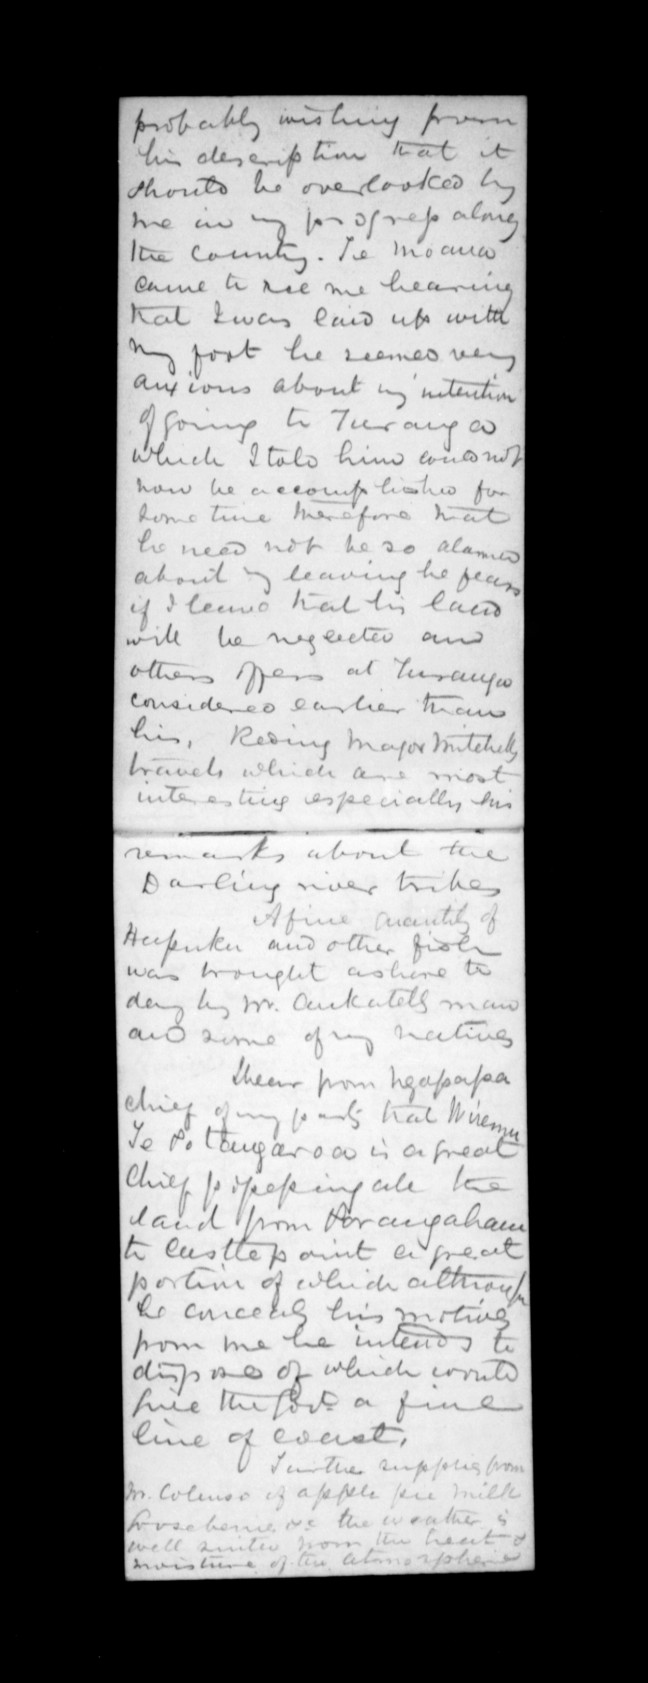 probably wishing from
his description that it
should be overlooked by
me in my progress along
the country. Te Moana
came to see me hearing
that I was laid up with
my foot he seemed very
anxious about my intention
of going to Turanga
which I told him could not
now be accomplished for
some time therefore that
he need not be so alarmed
about my leaving he fears
if I leave that his land
will be neglected and
others offers at Turanga
considered earlier than
his, Reading Major Mitchells
travels which are most
interesting especially his
remarks about the
Darling river tribes
A fine quantity of
Hapuku and other fish
was brought ashore to
day by Mr. man
and some of my natives
I hear from Ngapapa
chief of my party that Wiremu
Te Potangaroa is a great
Chief possessing all the
land from Porangahau
to Castlepoint a great
portion of which although
he conceals his motives
from me he intends to
dispose of which would
give the Govt. a fine
line of coast.
Further supplies from
Mr. Colenso of apple pie milk
Gooseberries &c the weather is
well suited from the heat &
moisture of the atmosphere